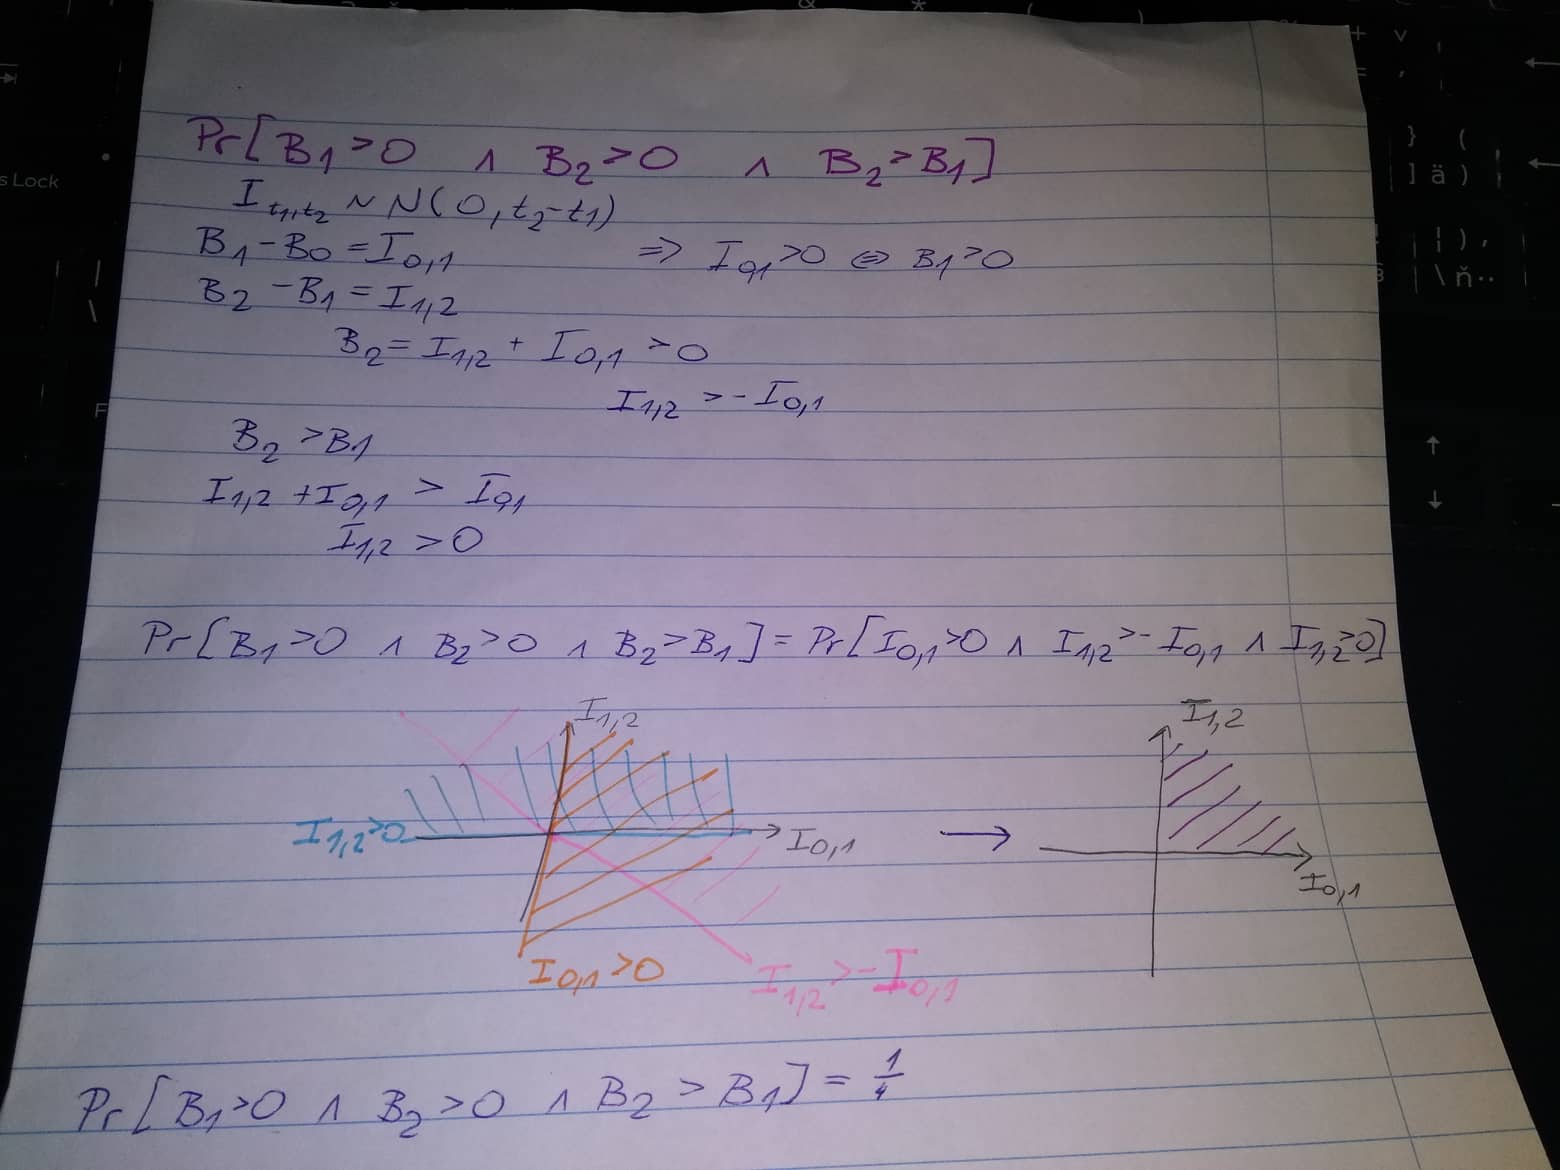 Pr[B₁>0 ∧ B₂>0 ∧ B₂>B₁]
I_{t₁,t₂} ~ N(0, t₂-t₁)
B₁-B₀ = I₀,₁ ⇒ I₀,₁>0 ⇔ B₁>0
B₂-B₁ = I₁,₂
B₂ = I₁,₂ + I₀,₁ > 0
I₁,₂ > -I₀,₁
B₂ > B₁
I₁,₂ + I₀,₁ > I₀,₁
I₁,₂ > 0
Pr[B₁>0 ∧ B₂>0 ∧ B₂>B₁] = Pr[I₀,₁>0 ∧ I₁,₂>-I₀,₁ ∧ I₁,₂>0]
I₁,₂
I₁,₂>0
I₀,₁
I₀,₁>0
I₁,₂>-I₀,₁
→
I₁,₂
I₀,₁
Pr[B₁>0 ∧ B₂>0 ∧ B₂>B₁] = 1/4
s Lock
F